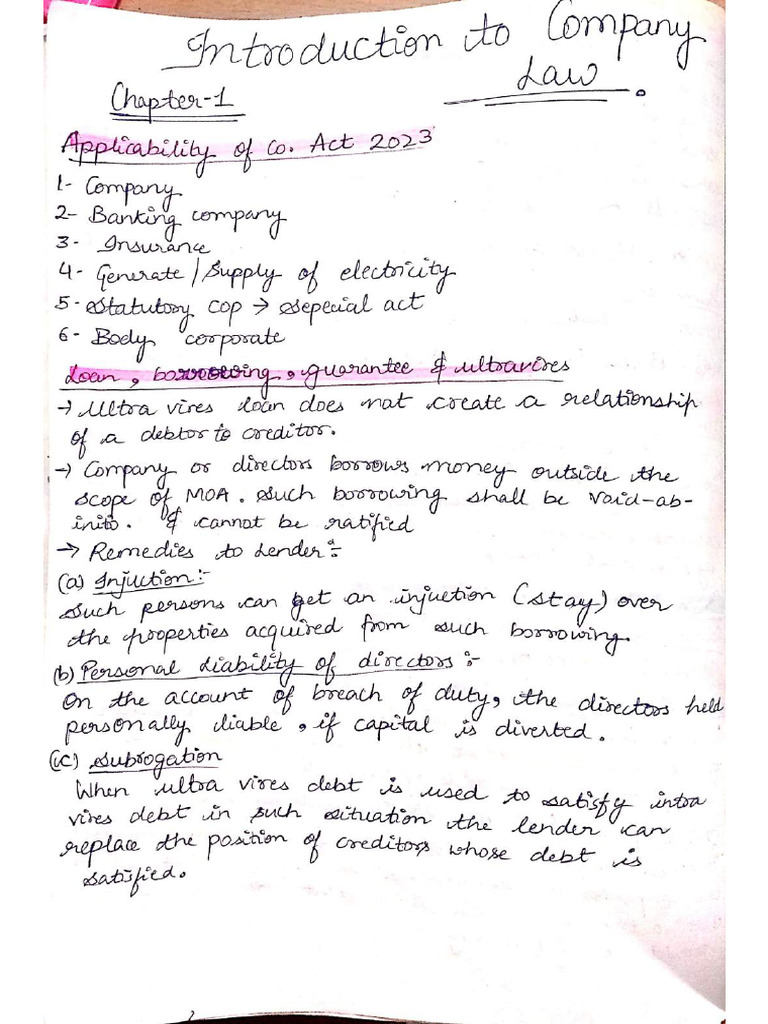 Introduction to Company
Law.
Chapter-1
Applicability of Co. Act 2023
1- Company
2- Banking company
3- Insurance
4- Generate/Supply of electricity
5- Statutory cop → Sepecial act
6- Body corporate
Loan, borrowing, guarantee & ultravires
→ Ultra vires loan does not create a relationship
of a debtor to creditor.
→ Company or directors borrows money outside the
scope of MOA. Such borrowing shall be void-ab-
inito. & cannot be ratified
→ Remedies to Lender:-
(a) Injuction:-
Such persons can get an injuction (stay) over
the properties acquired from such borrowing.
(b) Personal liability of directors:-
On the account of breach of duty, the directors held
personally liable, if capital is diverted.
(c) Subrogation
When ultra vires debt is used to satisfy intra
vires debt in such situation the lender can
replace the position of creditors whose debt is
satisfied.